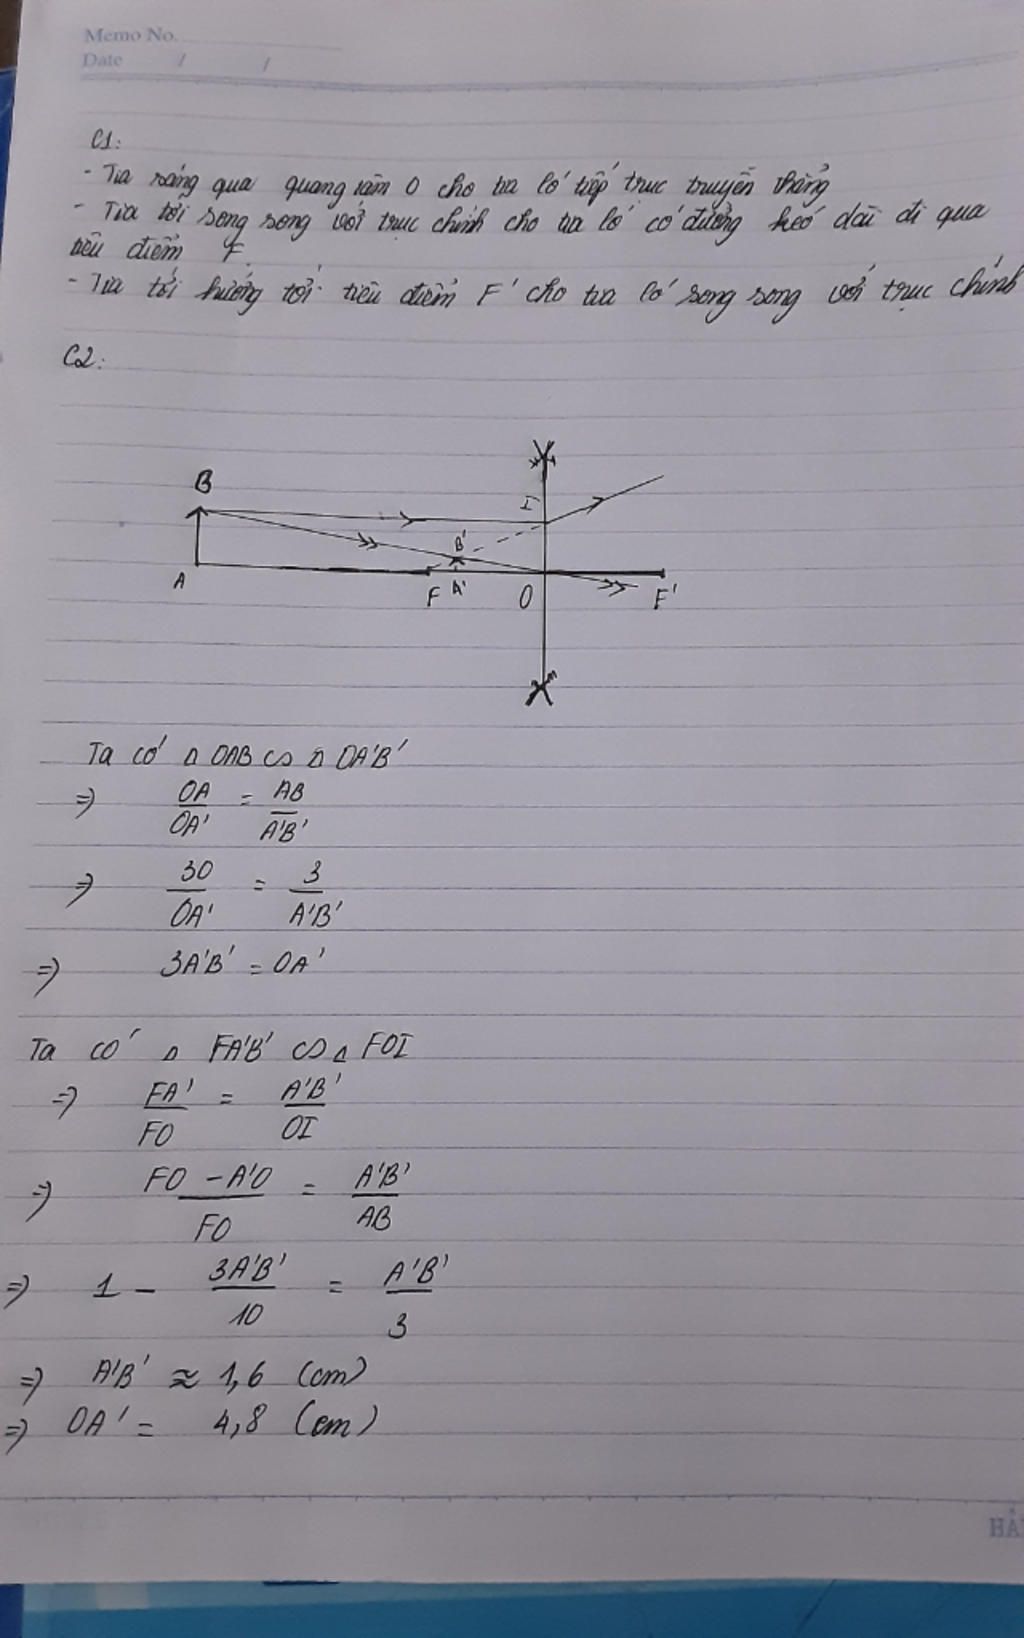 Memo No.
Date / /
C1:
- Tia sáng qua quang tâm O cho tia ló tiếp tục truyền thẳng
- Tia tới song song với trục chính cho tia ló có đường kéo dài đi qua
tiêu điểm F.
- Tia tới hướng tới tiêu điểm F' cho tia ló song song với trục chính
C2:
B
I
B'
A
F
A'
O
F'
Ta có Δ OAB ∽ Δ OA'B'
=> OA/OA' = AB/A'B'
=> 30/OA' = 3/A'B'
=> 3A'B' = OA'
Ta có Δ FA'B' ∽ Δ FOI
=> FA'/FO = A'B'/OI
=> FO - A'O/FO = A'B'/AB
=> 1 - 3A'B'/10 = A'B'/3
=> A'B' ≈ 1,6 (cm)
=> OA' = 4,8 (cm)